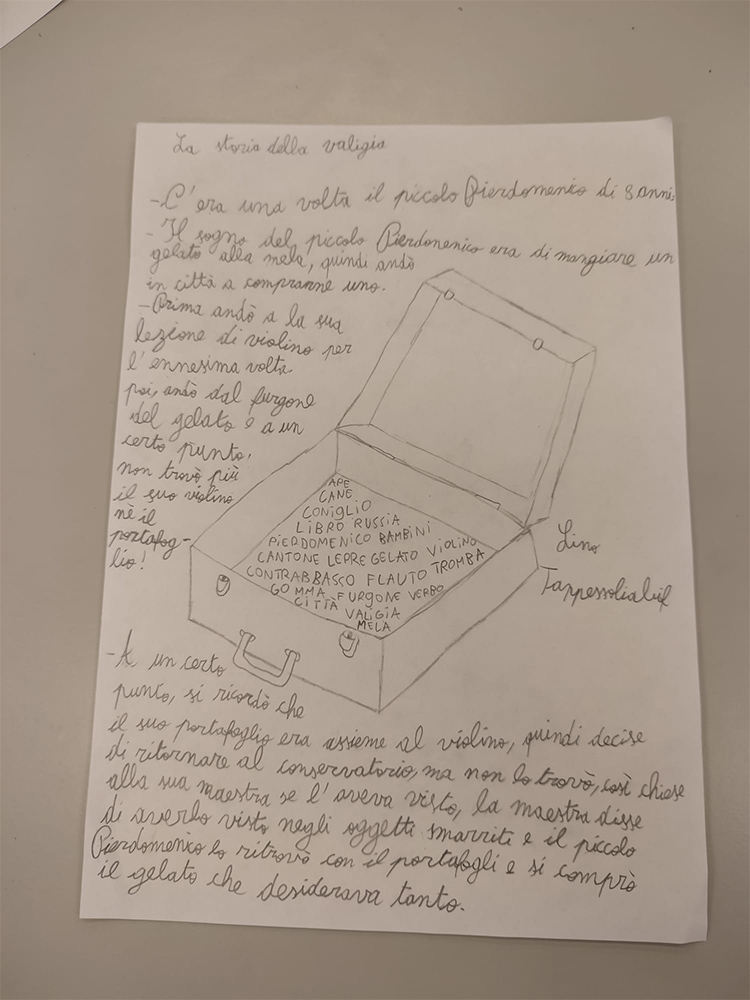 La storia della valigia
-C'era una volta il piccolo Pierdomenico di 8 anni.
-Il sogno del piccolo Pierdomenico era di mangiare un
gelato alla mela, quindi andò
in città a compranne uno.
-Prima andò a la sua
lezione di violino per
l'ennesima volta
poi, andò dal furgone
del gelato e a un
certo punto,
non trovò più
il suo violino
nè il
portafog-
lio!
APE
CANE
CONIGLIO
LIBRO RUSSIA
PIERDOMENICO BAMBINI
CANTONE LEPRE GELATO VIOLINO
CONTRABBASSO FLAUTO TROMBA
GOMMA FURGONE VERBO
CITTÀ VALIGIA
MELA
Lino
-A un certo
punto, si ricordò che
il suo portafoglio era assieme al violino, quindi decise
di ritornare al conservatorio, ma non lo trovò, così chiese
alla sua maestra se l'aveva visto, la maestra disse
di averlo visto negli oggetti smarriti e il piccolo
Pierdomenico lo ritrovò con il portafogli e si comprò
il gelato che desiderava tanto.